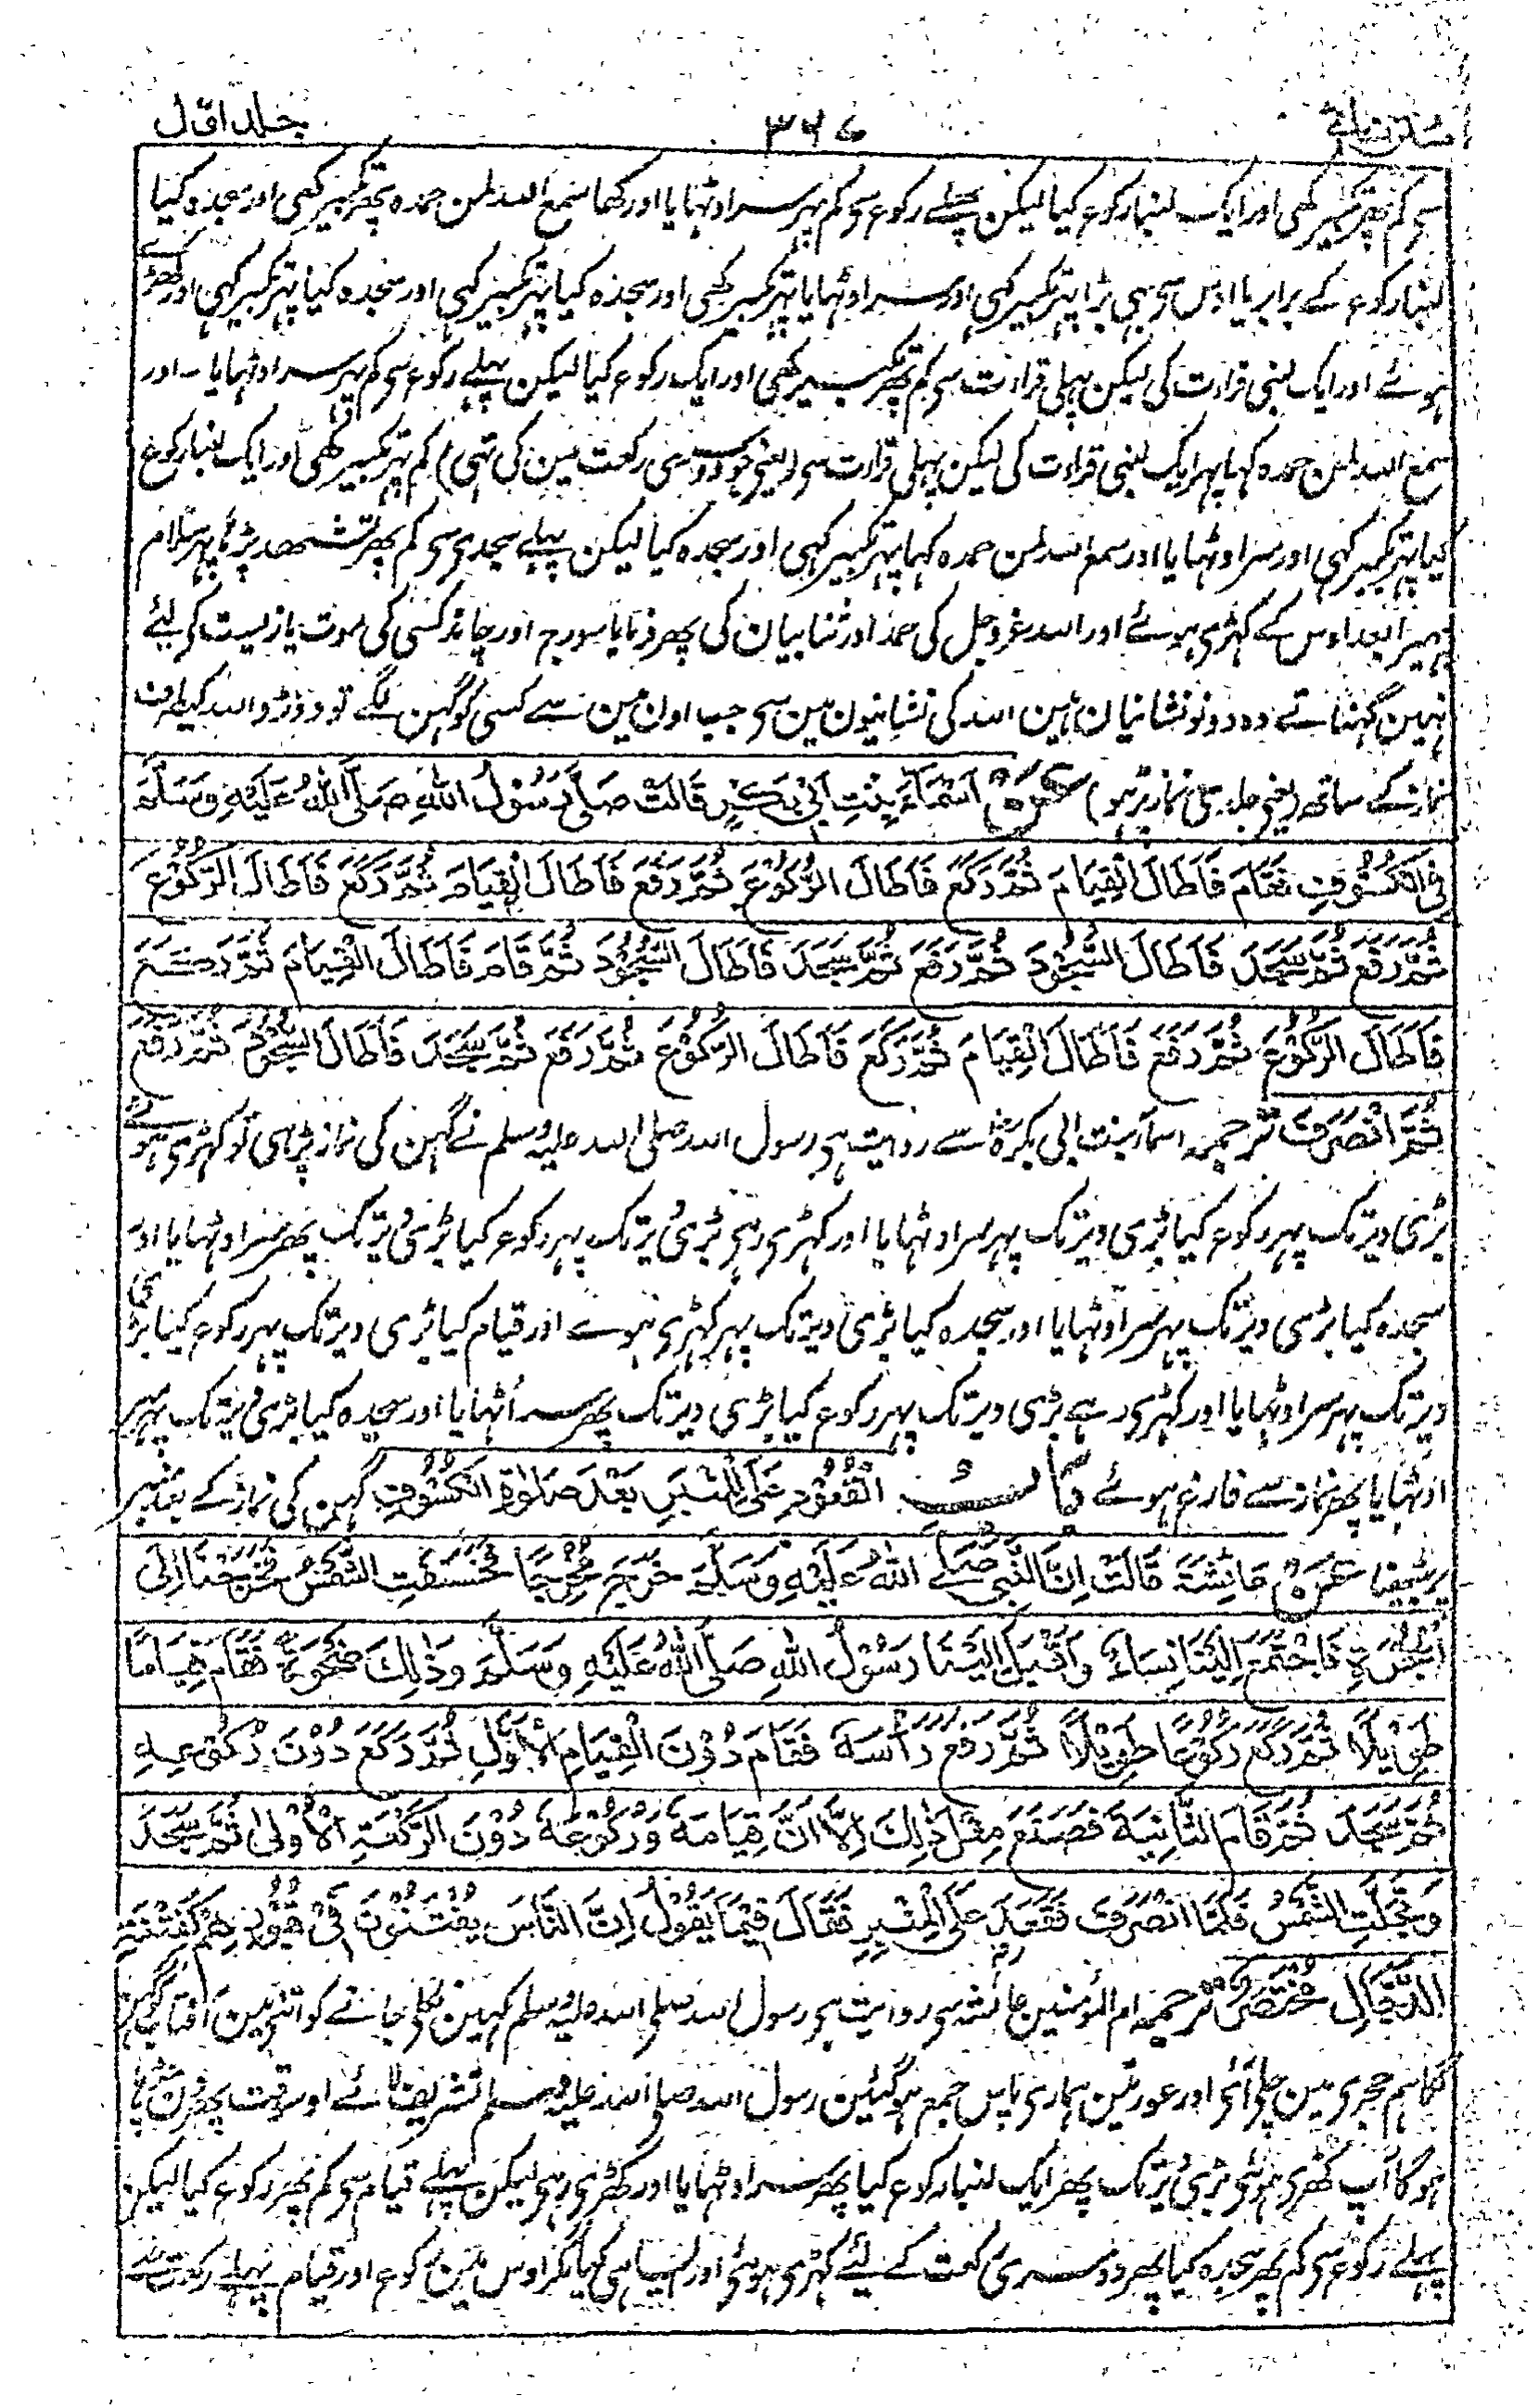 سنن نسائی ۳۶۷ جلد اول
سی کم پھر تکبیر کہی اور ایک لنبا رکوع کیا لیکن پہلے رکوع سی کم پہر سر اوٹہایا اور کہا سمع اللہ لمن حمدہ پھر تکبیر کہی اور سجدہ کیا
لنبا رکوع کے برابر یا اوس سی بہی بڑا پہر تکبیر کہی اور سر اوٹہایا پہر تکبیر کہی اور سجدہ کیا پہر تکبیر کہی اور سجدہ کیا پہر تکبیر کہی اور کھڑے
ہوئے اور ایک لنبی قرات کی لیکن پہلی قرات سی کم پھر تکبیر کہی اور ایک رکوع کیا لیکن پہلے رکوع سی کم پہر سر اوٹہایا ۔ اور
سمع اللہ لمن حمدہ کہا پہر ایک لنبی قرات کی لیکن پہلی قرات سی (یعنی جو دوسری رکعت مین کی تہی) کم پہر تکبیر کہی اور ایک لنبا رکوع
کیا پہر تکبیر کہی اور سر اوٹہایا اور سمع اللہ لمن حمدہ کہا پہر تکبیر کہی اور سجدہ کیا لیکن پہلے سجدی سی کم پھر تشہد پڑہا پہر سلام
پہیرا بعد اوس کے کہڑی ہوئے اور اللہ عزوجل کی حمد اور ثنا بیان کی پھر فرمایا سورج اور چاند کسی کی موت یا زیست کی لئے
نہین گہناتے وہ دونو نشانیان ہین اللہ کی نشانیون مین سی جب اون مین سے کسی کو گہن لگے تو دوڑو اللہ کیطرف
نماز کے ساتھ (یعنی جلدی نماز پڑہو) عَنْ اَسْمَاءَ بِنْتِ اَبِیْ بَكْرٍ قَالَتْ صَلّٰی رَسُوْلُ اللّٰهِ صَلَّی اللّٰهُ عَلَیْهِ وَسَلَّمَ
فِی الْكُسُوْفِ فَقَامَ فَاَطَالَ الْقِیَامَ ثُمَّ رَكَعَ فَاَطَالَ الرُّكُوْعَ ثُمَّ رَفَعَ فَاَطَالَ الْقِیَامَ ثُمَّ رَكَعَ فَاَطَالَ الرُّكُوْعَ
ثُمَّ رَفَعَ ثُمَّ سَجَدَ فَاَطَالَ السُّجُوْدَ ثُمَّ رَفَعَ ثُمَّ سَجَدَ فَاَطَالَ السُّجُوْدَ ثُمَّ قَامَ فَاَطَالَ الْقِیَامَ ثُمَّ رَكَعَ
فَاَطَالَ الرُّكُوْعَ ثُمَّ رَفَعَ فَاَطَالَ الْقِیَامَ ثُمَّ رَكَعَ فَاَطَالَ الرُّكُوْعَ ثُمَّ رَفَعَ ثُمَّ سَجَدَ فَاَطَالَ السُّجُوْدَ ثُمَّ رَفَعَ
ثُمَّ انْصَرَفَ ترجمہ اسماء بنت ابی بکر سے روایت ہی رسول اللہ صلی اللہ علیہ وسلم نے گہن کی نماز پڑہی تو کہڑی ہوئے
بڑی دیر تک پہر رکوع کیا بڑی دیر تک پہر سر اوٹہایا اور کہڑی رہی بڑی دیر تک پہر رکوع کیا بڑی دیر تک پھر سر اوٹہایا اور
سجدہ کیا بڑی دیر تک پہر سر اوٹہایا اور سجدہ کیا بڑی دیر تک پہر کہڑی ہوے اور قیام کیا بڑی دیر تک پہر رکوع کیا بڑی
دیر تک پہر سر اوٹہایا اور کہڑی رہے بڑی دیر تک پہر رکوع کیا بڑی دیر تک پھر سر اُٹہایا اور سجدہ کیا بڑی دیر تک پہر سر
اوٹہایا پھر نماز سے فارغ ہوئے بَابُ الْقُعُوْدِ عَلَی الْمِنْبَرِ بَعْدَ صَلٰوةِ الْكُسُوْفِ گہن کی نماز کے بعد منبر
پر بیٹہنا عَنْ عَائِشَةَ قَالَتْ اِنَّ النَّبِیَّ صَلَّی اللّٰهُ عَلَیْهِ وَسَلَّمَ خَرَجَ مَخْرَجًا فَخُسِفَتِ الشَّمْسُ فَخَرَجْنَا اِلَی
الْحُجْرَةِ فَاجْتَمَعَ اِلَیْنَا نِسَاءٌ وَاَقْبَلَ اِلَیْنَا رَسُوْلُ اللّٰهِ صَلَّی اللّٰهُ عَلَیْهِ وَسَلَّمَ وَذٰلِكَ ضَحْوَةً فَقَامَ قِیَامًا
طَوِیْلًا ثُمَّ رَكَعَ رُكُوْعًا طَوِیْلًا ثُمَّ رَفَعَ رَاْسَهٗ فَقَامَ دُوْنَ الْقِیَامِ الْاَوَّلِ ثُمَّ رَكَعَ دُوْنَ رُكُوْعِهٖ
ثُمَّ سَجَدَ ثُمَّ قَامَ الثَّانِیَةَ فَصَنَعَ مِثْلَ ذٰلِكَ اِلَّا اَنَّ قِیَامَهٗ وَرُكُوْعَهٗ دُوْنَ الرَّكْعَةِ الْاُوْلٰی ثُمَّ سَجَدَ
وَتَجَلَّتِ الشَّمْسُ فَلَمَّا انْصَرَفَ فَقَعَدَ عَلَی الْمِنْبَرِ فَقَالَ فِیْمَا یَقُوْلُ اِنَّ النَّاسَ یُفْتَنُوْنَ فِیْ قُبُوْرِهِمْ كَفِتْنَةِ
الدَّجَّالِ مُخْتَصَرٌ ترجمہ ام المومنین عائشہ سی روایت ہی رسول اللہ صلی اللہ علیہ وسلم کہین نکلی جانے کو اتنی مین آفتاب گہن
لگا ہم حجری مین چلی آئی اور عورتین ہماری پاس جمع ہوگئین رسول اللہ صلی اللہ علیہ وسلم تشریف لائے اوسوقت پھر دن چڑہا
ہوگا آپ کھڑی ہوئی بڑی دیر تک پھر ایک لنبا رکوع کیا پھر سر اوٹہایا اور کھڑی رہی لیکن پہلے قیام سی کم پھر رکوع کیا لیکن
پہلے رکوع سی کم پھر سجدہ کیا پھر دوسری رکعت کے لیئے کہڑی ہوئی اور ایسا ہی کیا مگر اوس مین رکوع اور قیام پہلے رکعت سے